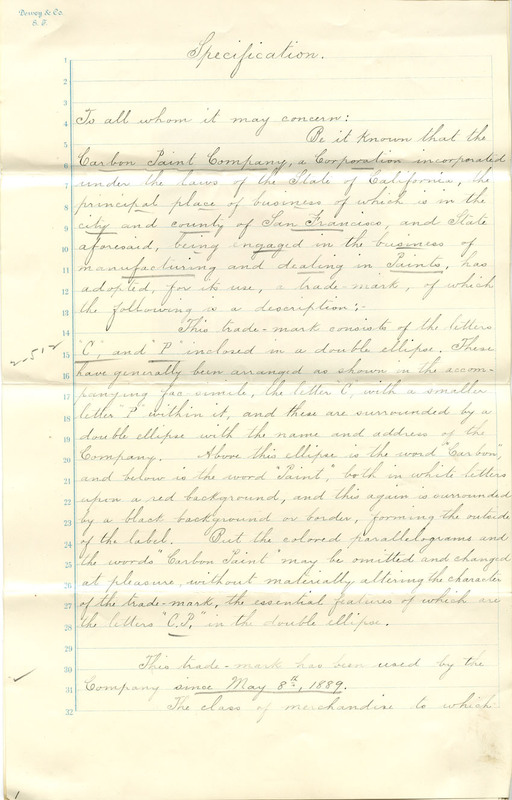 Dewey & Co.
S. F.
Specification.
To all whom it may concern:
Be it known that the
Carbon Paint Company, a Corporation incorporated
under the laws of the State of California, the
principal place of business of which is in the
city and county of San Francisco, and State
aforesaid, being engaged in the business of
manufacturing and dealing in Paints, has
adopted, for its use, a trade-mark, of which
the following is a description:-
This trade-mark consists of the letters
"C", and "P" inclosed in a double ellipse. These
have generally been arranged as shown in the accom-
panying fac simile, the letter "C", with a smaller
letter "P" within it, and these are surrounded by a
double ellipse with the name and address of the
Company. Above this ellipse is the word "Carbon",
and below is the word "Paint", both in white letters
upon a red background, and this again is surrounded
by a black background or border, forming the outside
of the label. But the colored parallelograms and
the words "Carbon Paint" may be omitted and changed
at pleasure, without materially altering the character
of the trade-mark, the essential features of which are
the letters "C.P." in the double ellipse.
This trade-mark has been used by the
Company since May 8th, 1889.
The class of merchandise to which
2512
1
2
3
4
5
6
7
8
9
10
11
12
13
14
15
16
17
18
19
20
21
22
23
24
25
26
27
28
29
30
31
32